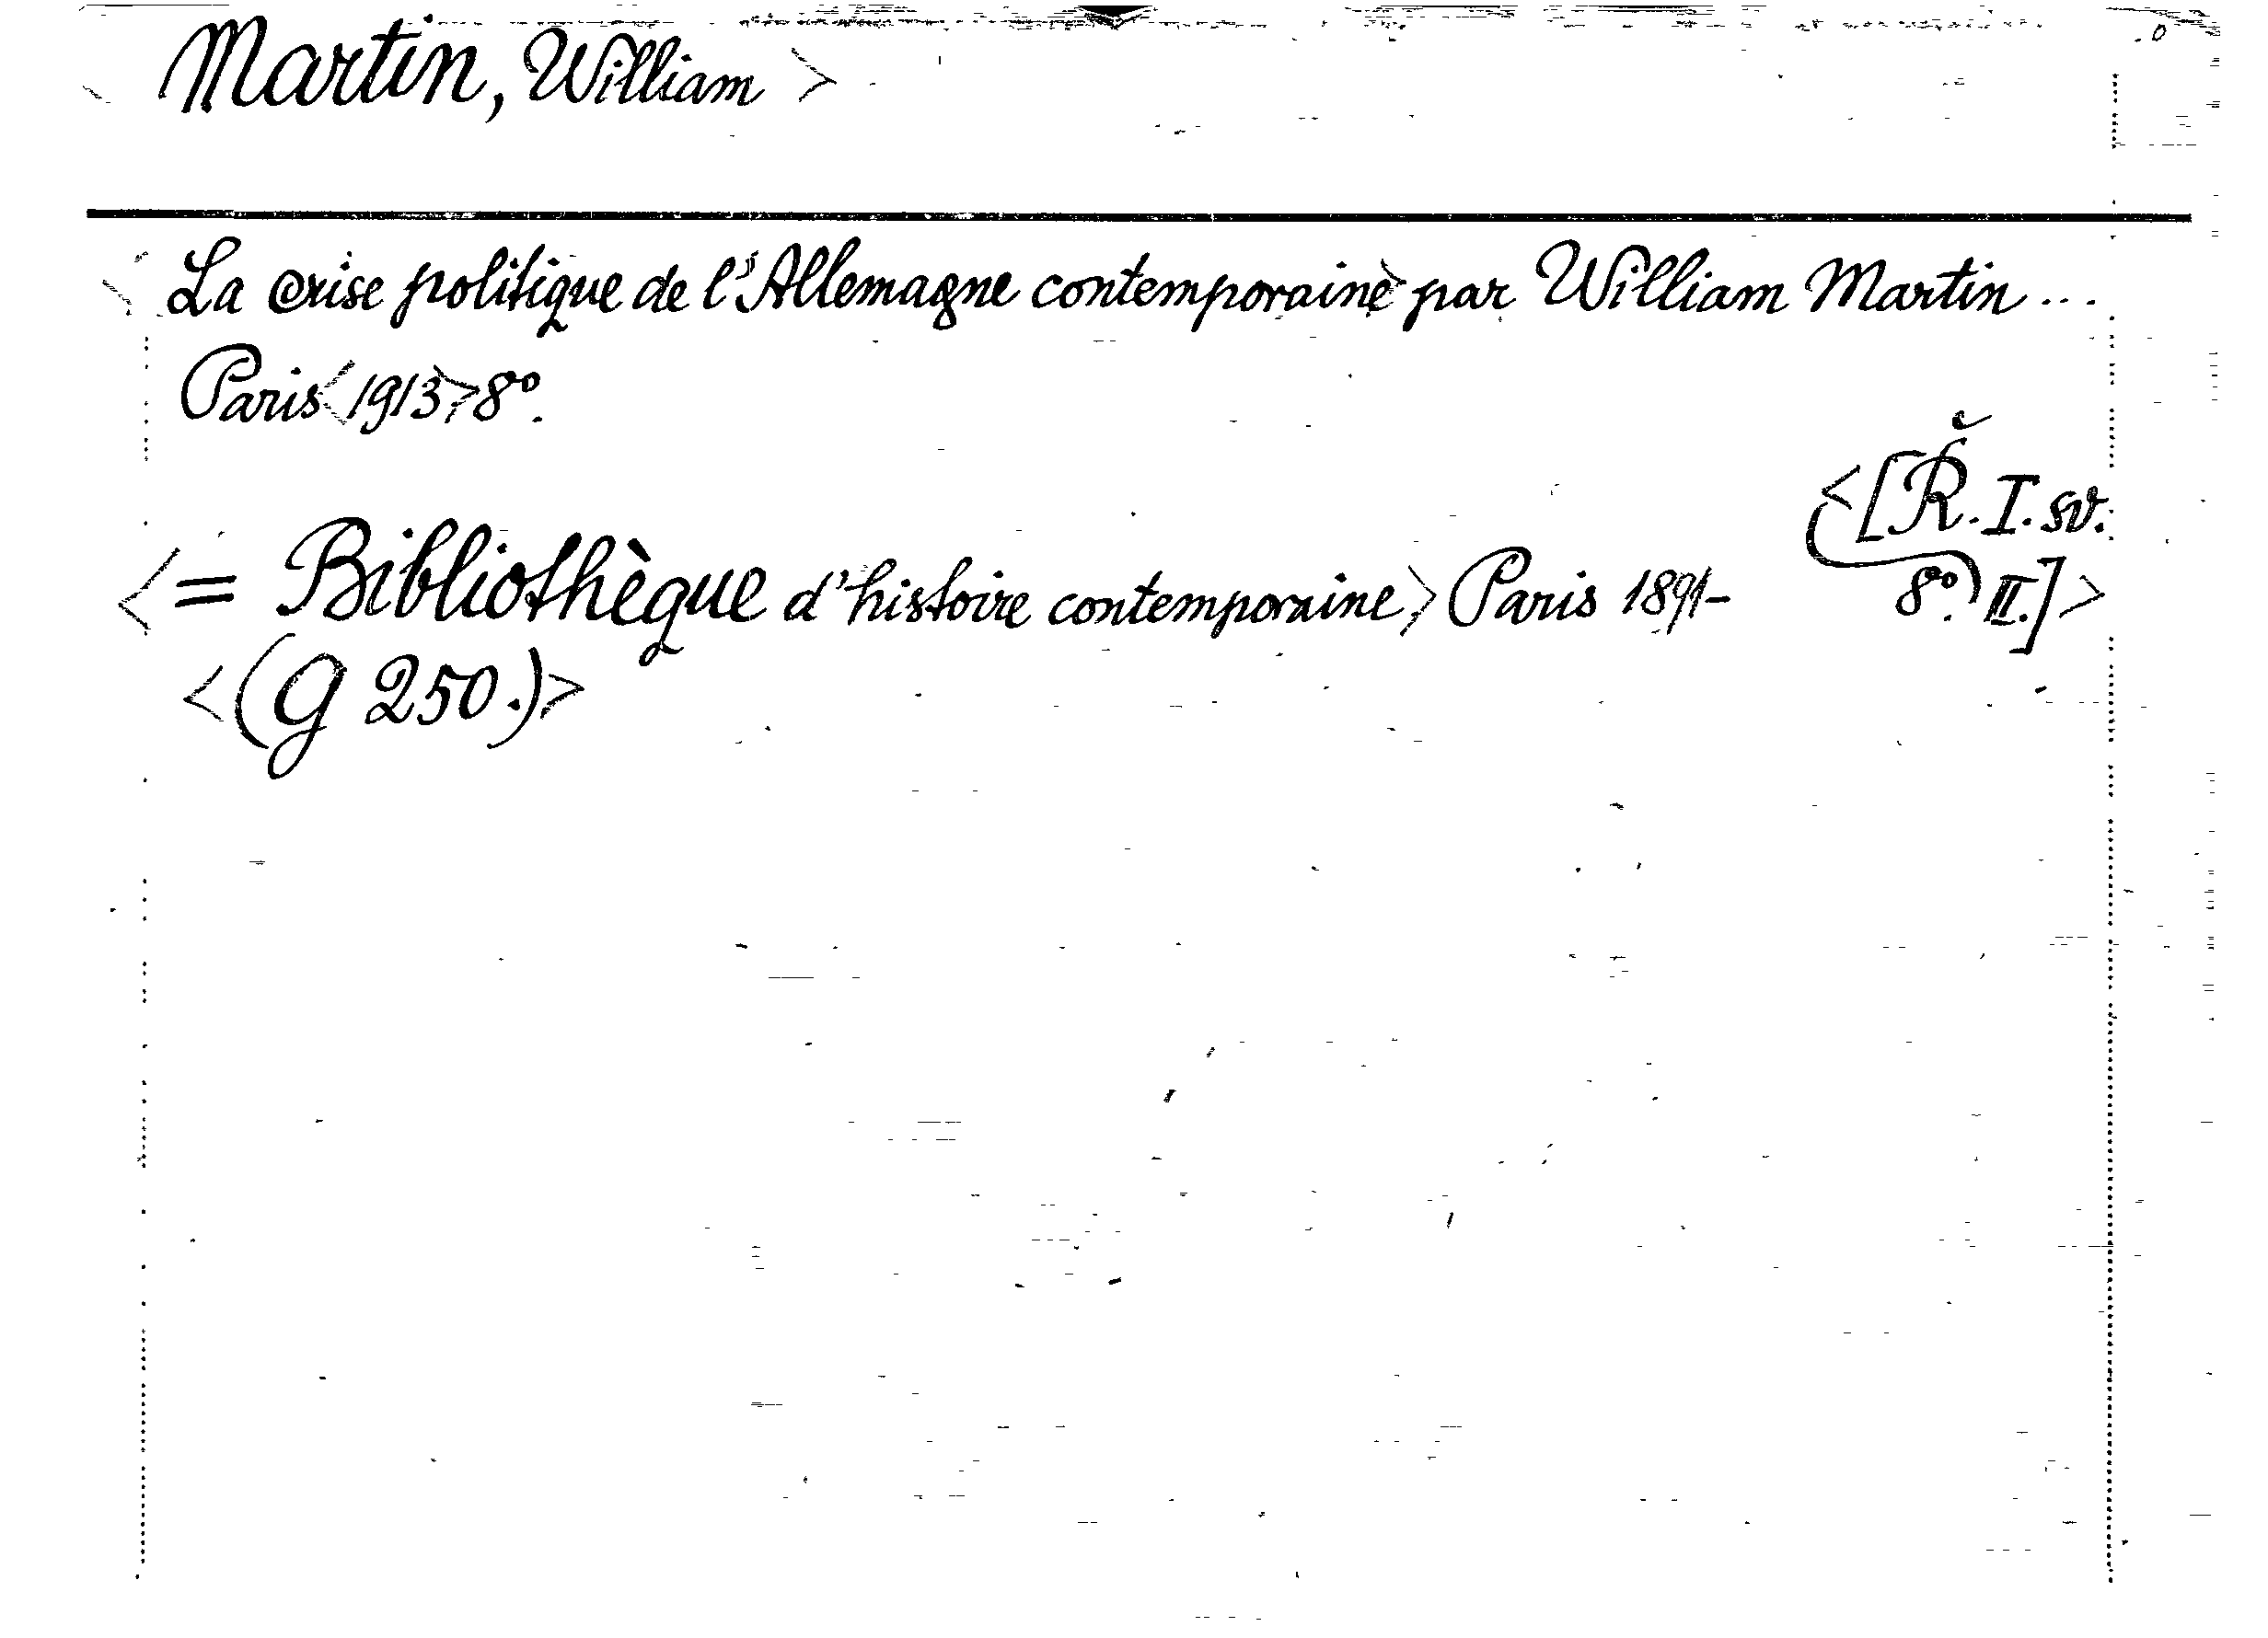 Martin, William >
<La crise politique de l'Allemagne contemporaine> par William Martin...
Paris <1913> 8º.
<[Ř. I. sv.
<= Bibliothèque d'histoire contemporaine.> Paris 1891- 8º. II.]>
<(G 250.)>